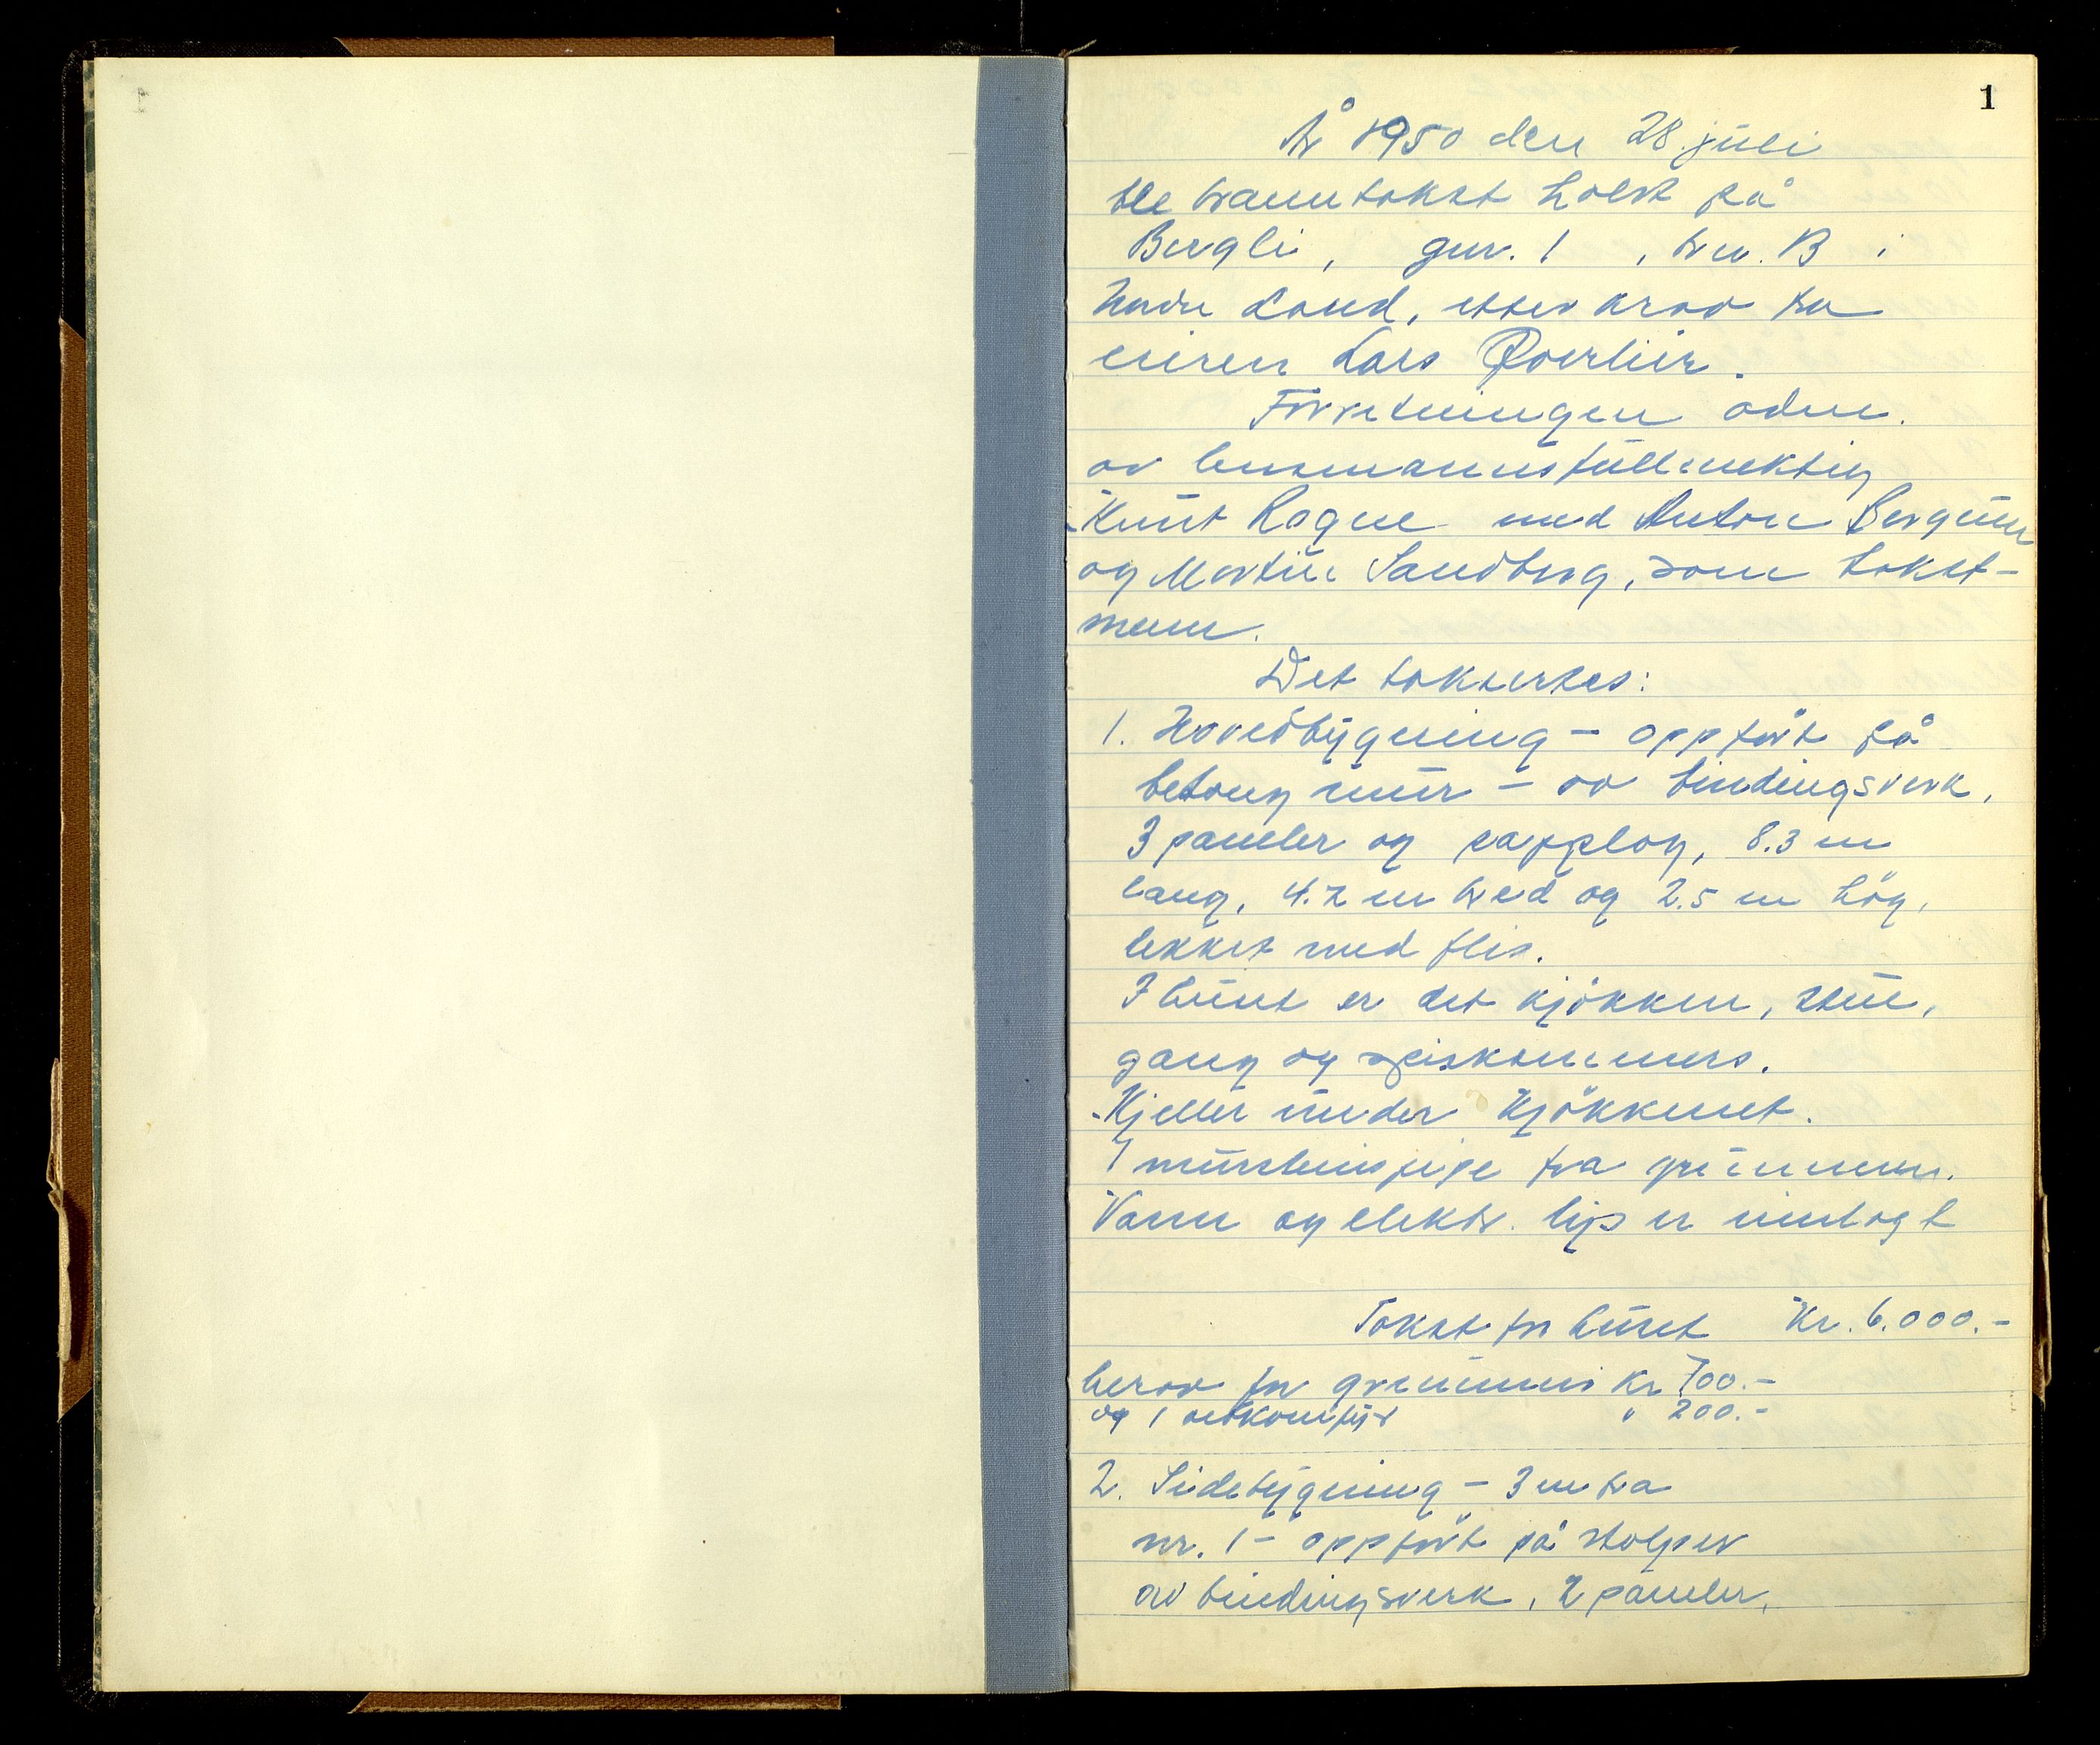 1
År 1950 den 28. juli
ble branntakst holdt på
Bergli, gnr. 1, bnr. 13 i
Nordre Land, etter krav fra
eieren Lars
Forretningen adm.
av lensmannsfullmektig
Knut Rogne med Anton Bergum
og Martin Sandberg, som takst-
menn.
Det taksertes:
1. Hovedbygning - oppført på
betong mur - av bindingsverk,
3 paneler og papplag, 8.3 m
lang, 4.2 m bred og 2.5 m høg,
tekket med flis.
I huset er det kjøkken, stue,
gang og spiskammers.
Kjeller under kjøkkenet.
1 mursteinspipe fra grunnen.
Vann og elektr. lys er innlagt
Takst for huset Kr. 6.000.-
herav for grunnmur Kr 700.-
og 1 vedkomfyr " 200.-
2. Sidebygning - 3 m fra
nr. 1 - oppført på stolper
av bindingsverk, 2 paneler,